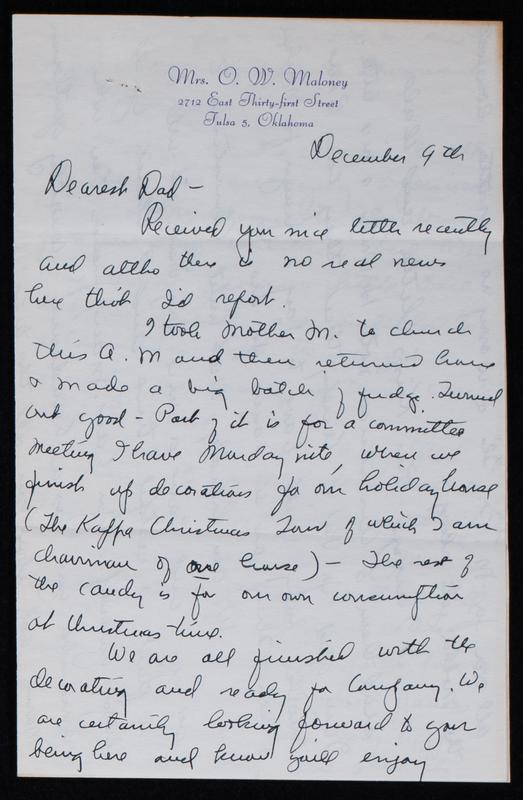 Mrs. O. W. Maloney
2712 East Thirty-first Street
Tulsa 5, Oklahoma
December 9th
Dearest Dad -
Received your nice letter recently
and altho there is no real news
here think I'd report.
I took Mother M. to church
this A.M and then returned home
& made a big batch of fudge. Turned
out good - Part of it is for a committee
meeting I have Monday nite, when we
finish up decorations for our holiday house
(The Kappa Christmas Tour of which I am
chairman of one house) - The rest of
the candy is for our own consumption
at Christmas time.
We are all finished with the
decorating and ready for Company. We
are certainly looking forward to your
being here and know you'll enjoy